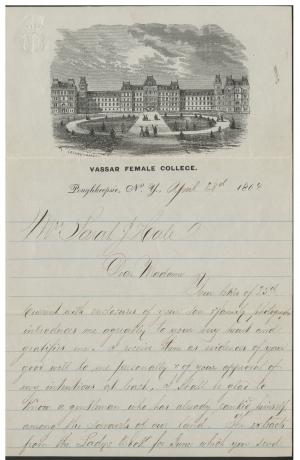 VASSAR FEMALE COLLEGE.
Poughkeepsie, N. Y. April 28th 186
Mrs Sarah J Hale
Dear Madame
Your letter of 25th
current with enclosures of your son & family photographs
introduces me agreeably to your very and
gratifies me. I receive them as evidences of your
good will to me personally & of your approval of
my intentions at least. I shall be glad to
know a gentleman who has already ranked himself
among the savants of our land. The extracts
from the Lady's Book for June which you send